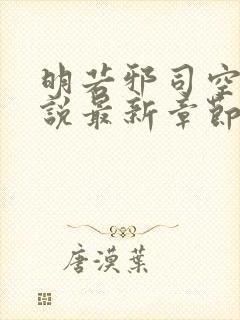 明若邪司空
說最新章節
唐漠葉